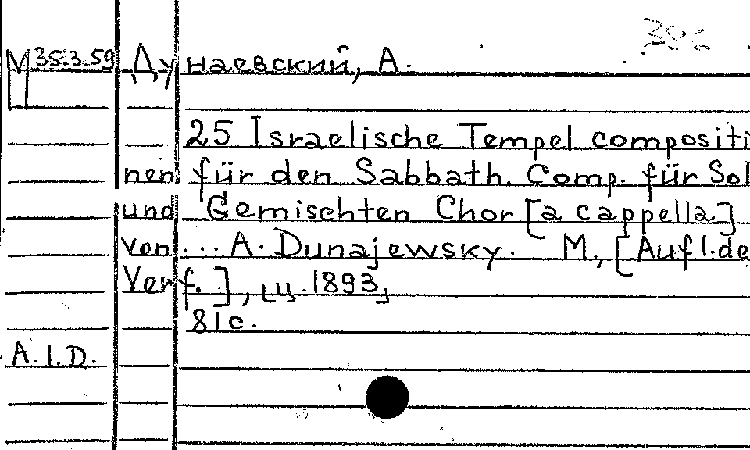 М 35.3.59 Дунаевский, А.
25 Israelische Tempel compositi
nen für den Sabbath. Comp. für Sol
und Gemischten Chor [a cappella.]
von ... A. Dunajewsky. M., [Aufl. de
Verf.], [ц. 1893]
81 с.
A. I. D.